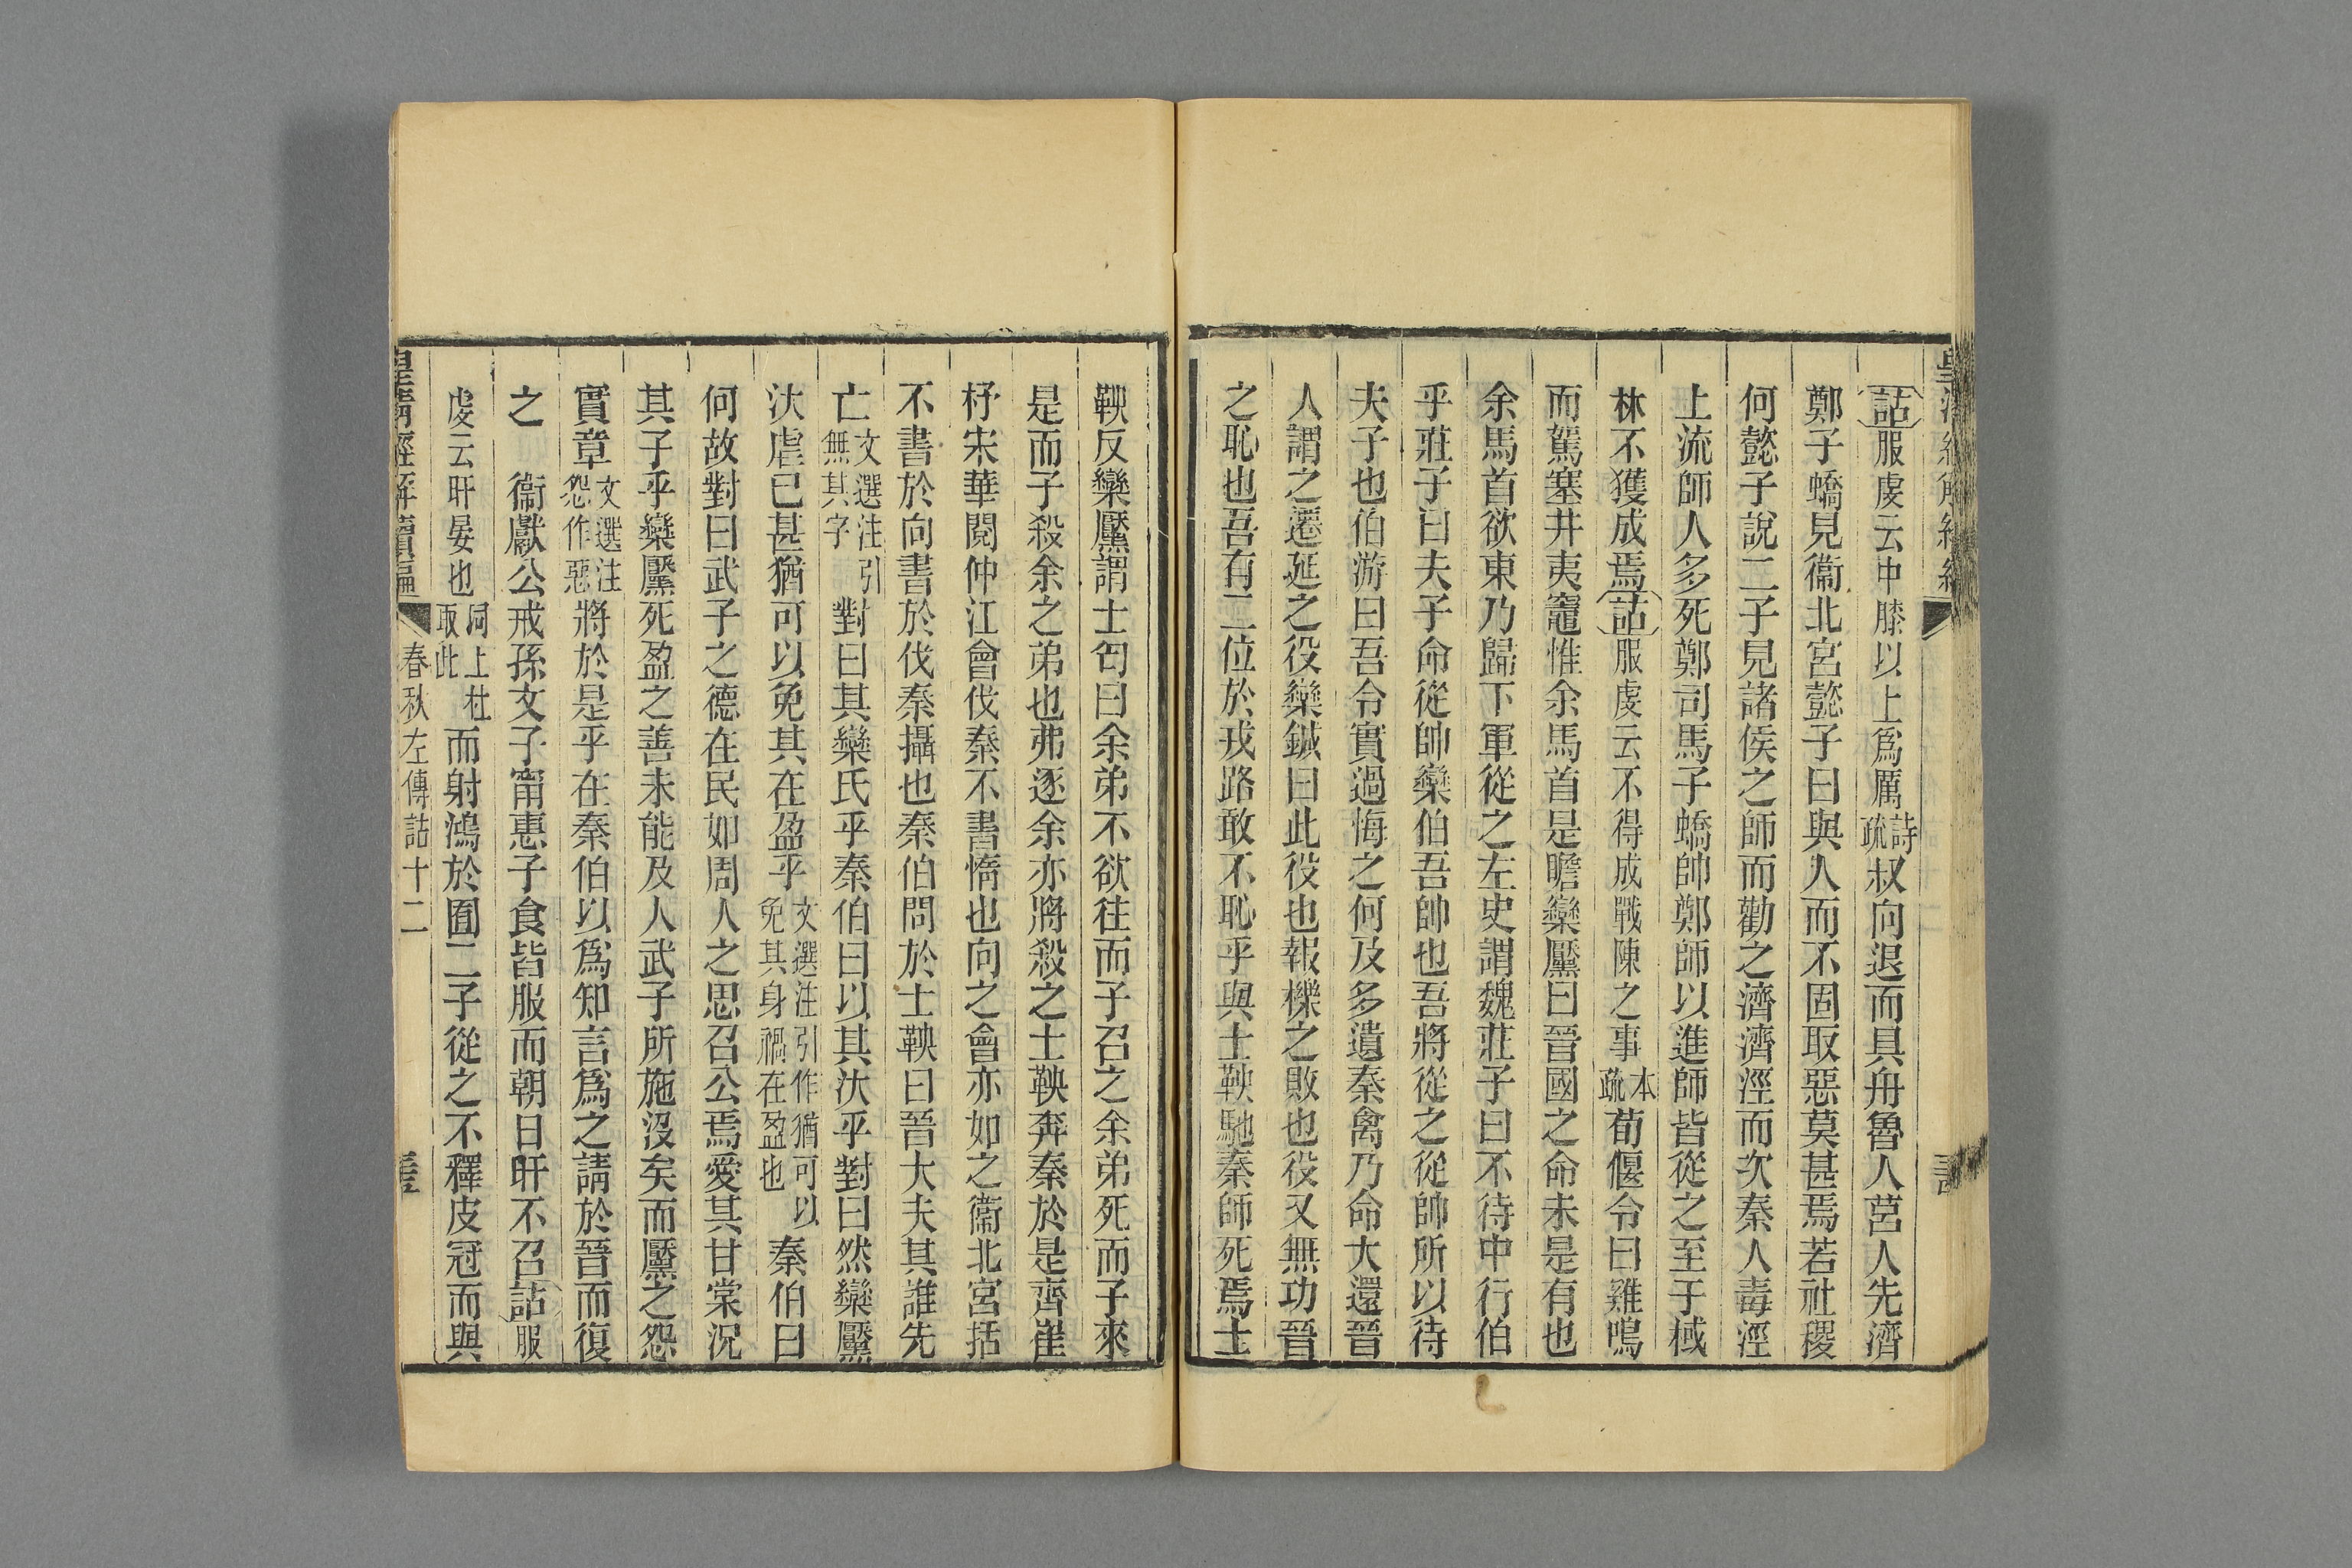 詁服虔云由膝以上爲厲詩疏叔向退而具舟魯人莒人先濟
鄭子蟜見衞北宮懿子曰與人而不固取惡莫甚焉若社稷
何懿子說二子見諸侯之師而勸之濟濟涇而次秦人毒涇
上流師人多死鄭司馬子蟜帥鄭師以進師皆從之至于棫
林不獲成焉詁服虔云不得成戰陳之事本疏荀偃令曰雞鳴
而駕塞井夷竈惟余馬首是瞻欒黶曰晉國之命未是有也
余馬首欲東乃歸下軍從之左史謂魏莊子曰不待中行伯
乎莊子曰夫子命從帥欒伯吾帥也吾將從之從帥所以待
夫子也伯游曰吾令實過悔之何及多遺秦禽乃命大還晉
人謂之遷延之役欒鍼曰此役也報櫟之敗也役又無功晉
之恥也吾有二位於戎路敢不恥乎與士鞅馳秦師死焉士
鞅反欒黶謂士匄曰余弟不欲往而子召之余弟死而子來
是而子殺余之弟也弗逐余亦將殺之士鞅奔秦於是齊崔
杼宋華閱仲江會伐秦不書惰也向之會亦如之衞北宮括
不書於向書於伐秦攝也秦伯問於士鞅曰晉大夫其誰先
亡文選注引無其字對曰其欒氏乎秦伯曰以其汰乎對曰然欒黶
汰虐已甚猶可以免其在盈乎文選注引作猶可以免其身禍在盈也秦伯曰
何故對曰武子之德在民如周人之思召公焉愛其甘棠況
其子乎欒黶死盈之善未能及人武子所施沒矣而黶之怨
實章文選注怨作惡將於是乎在秦伯以爲知言爲之請於晉而復
之　衞獻公戒孫文子甯惠子食皆服而朝日旰不召詁服
虔云旰晏也同上杜取此而射鴻於囿二子從之不釋皮冠而與
皇淸經解續編　春秋左傳詁十二